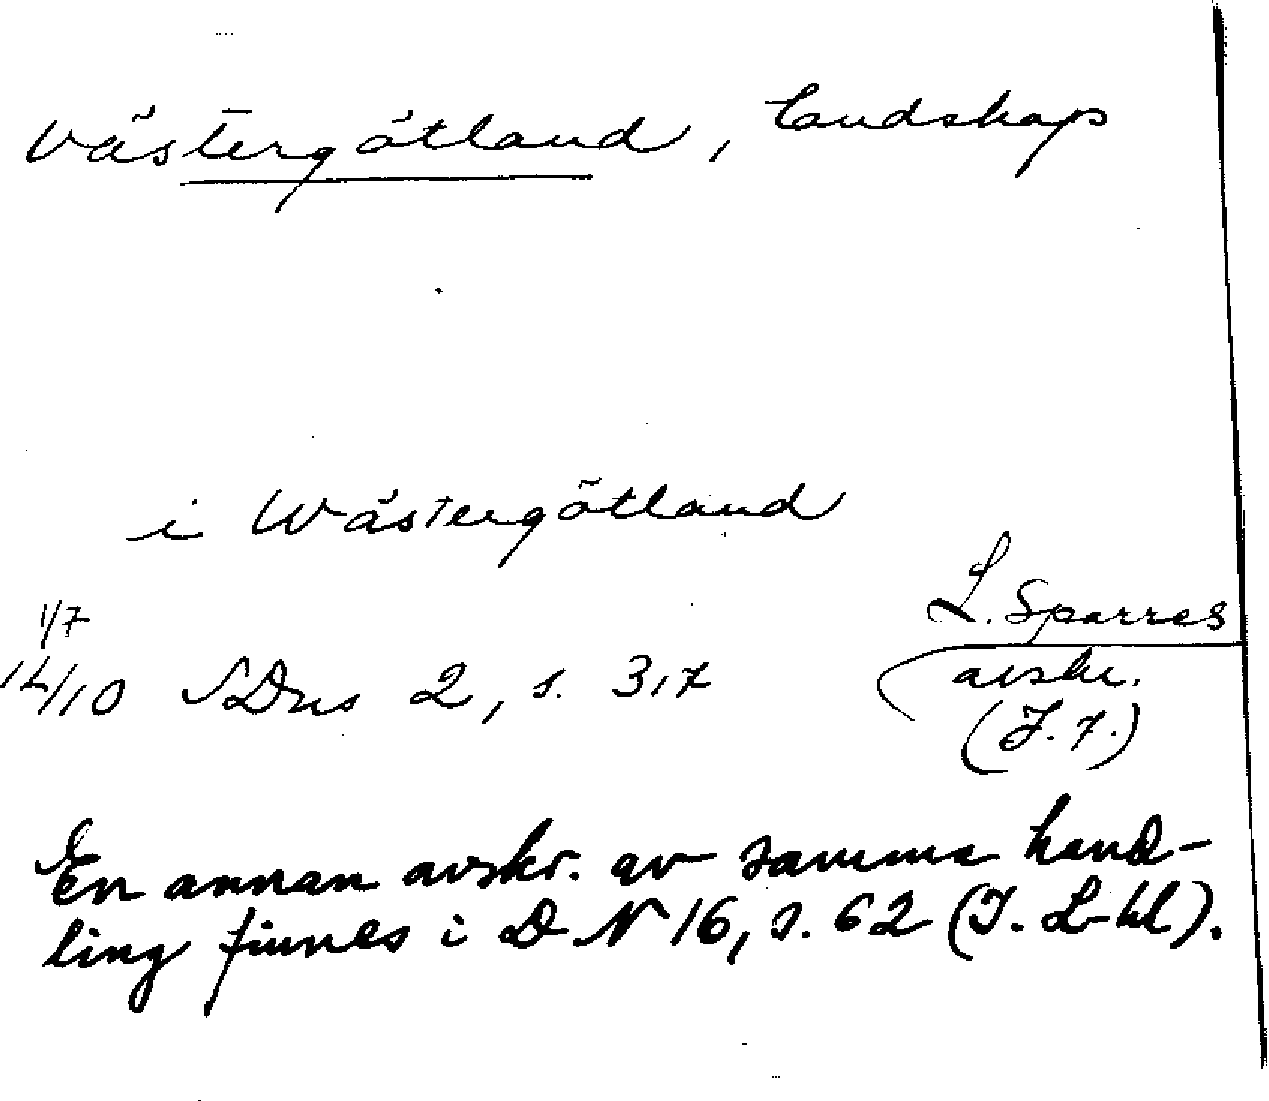 Västergötland, landskap
i Wästergötland
1/7
14/10 SDns 2, s. 317
L. Sparres
avskr.
(J. 7.)
En annan avskr. av samma hand-
ling finnes i DN 16, s. 62 (I. L-hl).